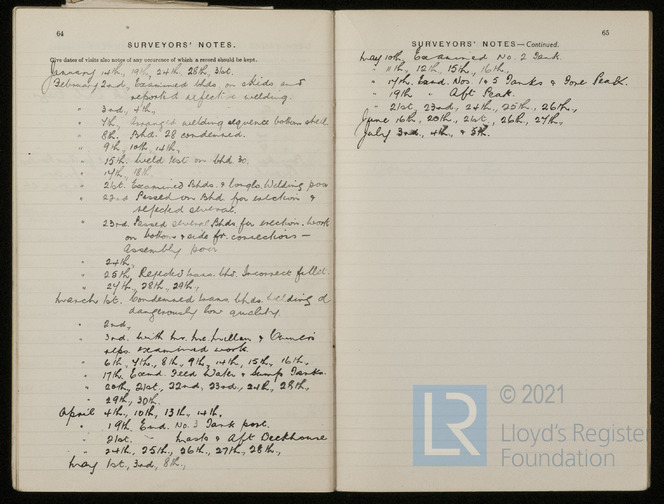 64
SURVEYORS' NOTES.
Give dates of visits also notes of any occurence of which a record should be kept.
January 14th, 19th, 24th, 28th, 31st.
February 2nd, Examined bhds. on skids and
reported defective welding.
" 3rd, 4th,
" 7th, Arranged welding sequence bottom shell
" 8th. Bhd. 28 condemned.
" 9th, 10th, 14th,
" 15th. Weld test on bhd 30.
" 17th, 18th
" 21st. Examined Bhds. & longls. Welding poor
" 22nd Passed one Bhd. for erection &
rejected several.
" 23rd. Passed several Bhds for erection. Work
on bottom & side for corrections —
assembly poor
" 24th,
" 25th, Rejected trans. bhd. Incorrect fitted.
" 27th, 28th, 29th,
March 1st. Condemned trans. bhds. welding of
dangerously low quality.
" 2nd,
" 3rd. With Mr. McMillan & Owners
reps. examined work.
" 6th, 7th, 8th, 9th, 14th, 15th, 16th,
" 17th. Exmd. Feed Water & Sump Tanks.
" 20th, 21st, 22nd, 23rd, 24th, 28th,
" 29th, 30th.
April 4th, 10th, 13th, 14th,
" 19th. Exmd. No. 3 Tank port.
" 21st. " Masts & Aft Deckhouse
" 24th, 25th, 26th, 27th, 28th,
May 1st, 3rd, 8th,
65
SURVEYORS' NOTES—Continued.
May 10th, Examined No. 2 Tank.
" 11th, 12th, 15th, 16th,
" 17th. Exmd. Nos. 1 & 5 Tanks & Fore Peak.
" 19th " Aft Peak.
" 21st, 23rd, 24th, 25th, 26th,
June 16th, 20th, 21st, 26th, 27th,
July 3rd, 4th, & 5th.
LR
© 2021
Lloyd's Register
Foundation